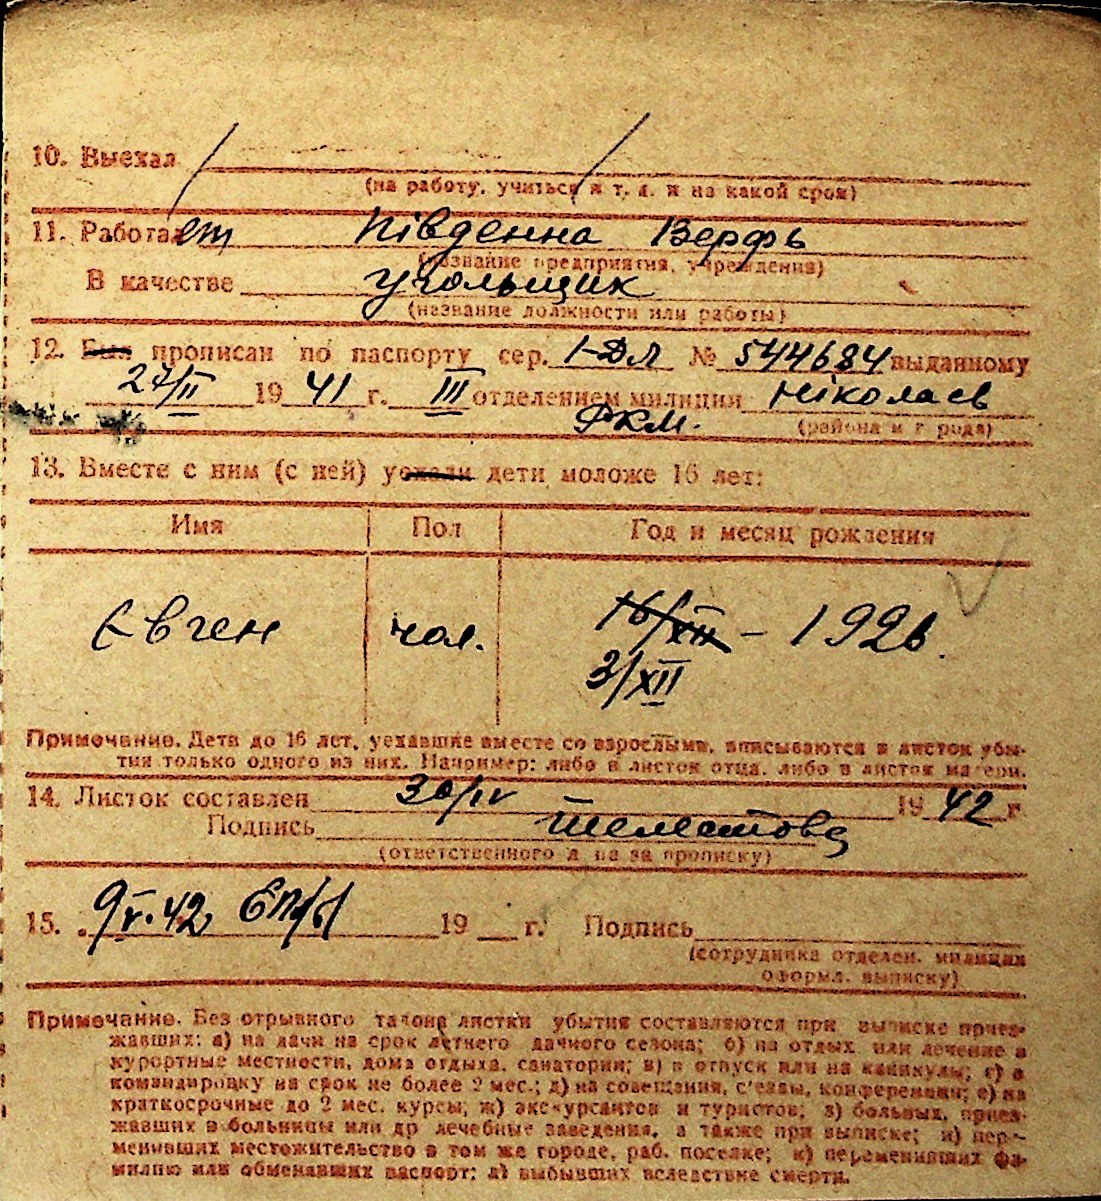 10. Выехал
(на работу, учиться и т. д. и на какой срок)
11. Работает Південна Верфь
(название предприятия, учреждения)
В качестве угольщик
(название должности или работы)
12. Был прописан по паспорту сер. І-ДЛ № 544684 выданному
27/II 1941 г. III отделением милиции Ніколаєв
РКМ. (района и города)
13. Вместе с ним (с ней) уехали дети моложе 16 лет:
Имя Пол Год и месяц рождения
Євген чол. 16/XII - 1926.
3/XII
Примечание. Дети до 16 лет, уехавшие вместе со взрослыми, вписываются в листок убы-
тия только одного из них. Например: либо в листок отца, либо в листок матери.
14. Листок составлен 30/IV 1942 г.
Подпись
(ответственного лица за прописку)
15. 9/V.42 19 г. Подпись
(сотрудника отделен. милиции
оформл. выписку)
Примечание. Без отрывного талона листки убытия составляются при выписке приез-
жавших: а) на дачи на срок летнего дачного сезона; б) на отдых или лечение в
курортные местности, дома отдыха, санатории; в) в отпуск или на каникулы; г) в
командировку на срок не более 2 мес.; д) на совещания, съезды, конференции; е) на
краткосрочные до 2 мес. курсы; ж) экскурсантов и туристов; з) больных, приез-
жавших в больницы или др лечебные заведения, а также при выписке; и) пере-
менивших местожительство в том же городе, раб. поселке; к) переменивших фа-
милию или обменявших паспорт; л) выбывших вследствие смерти.